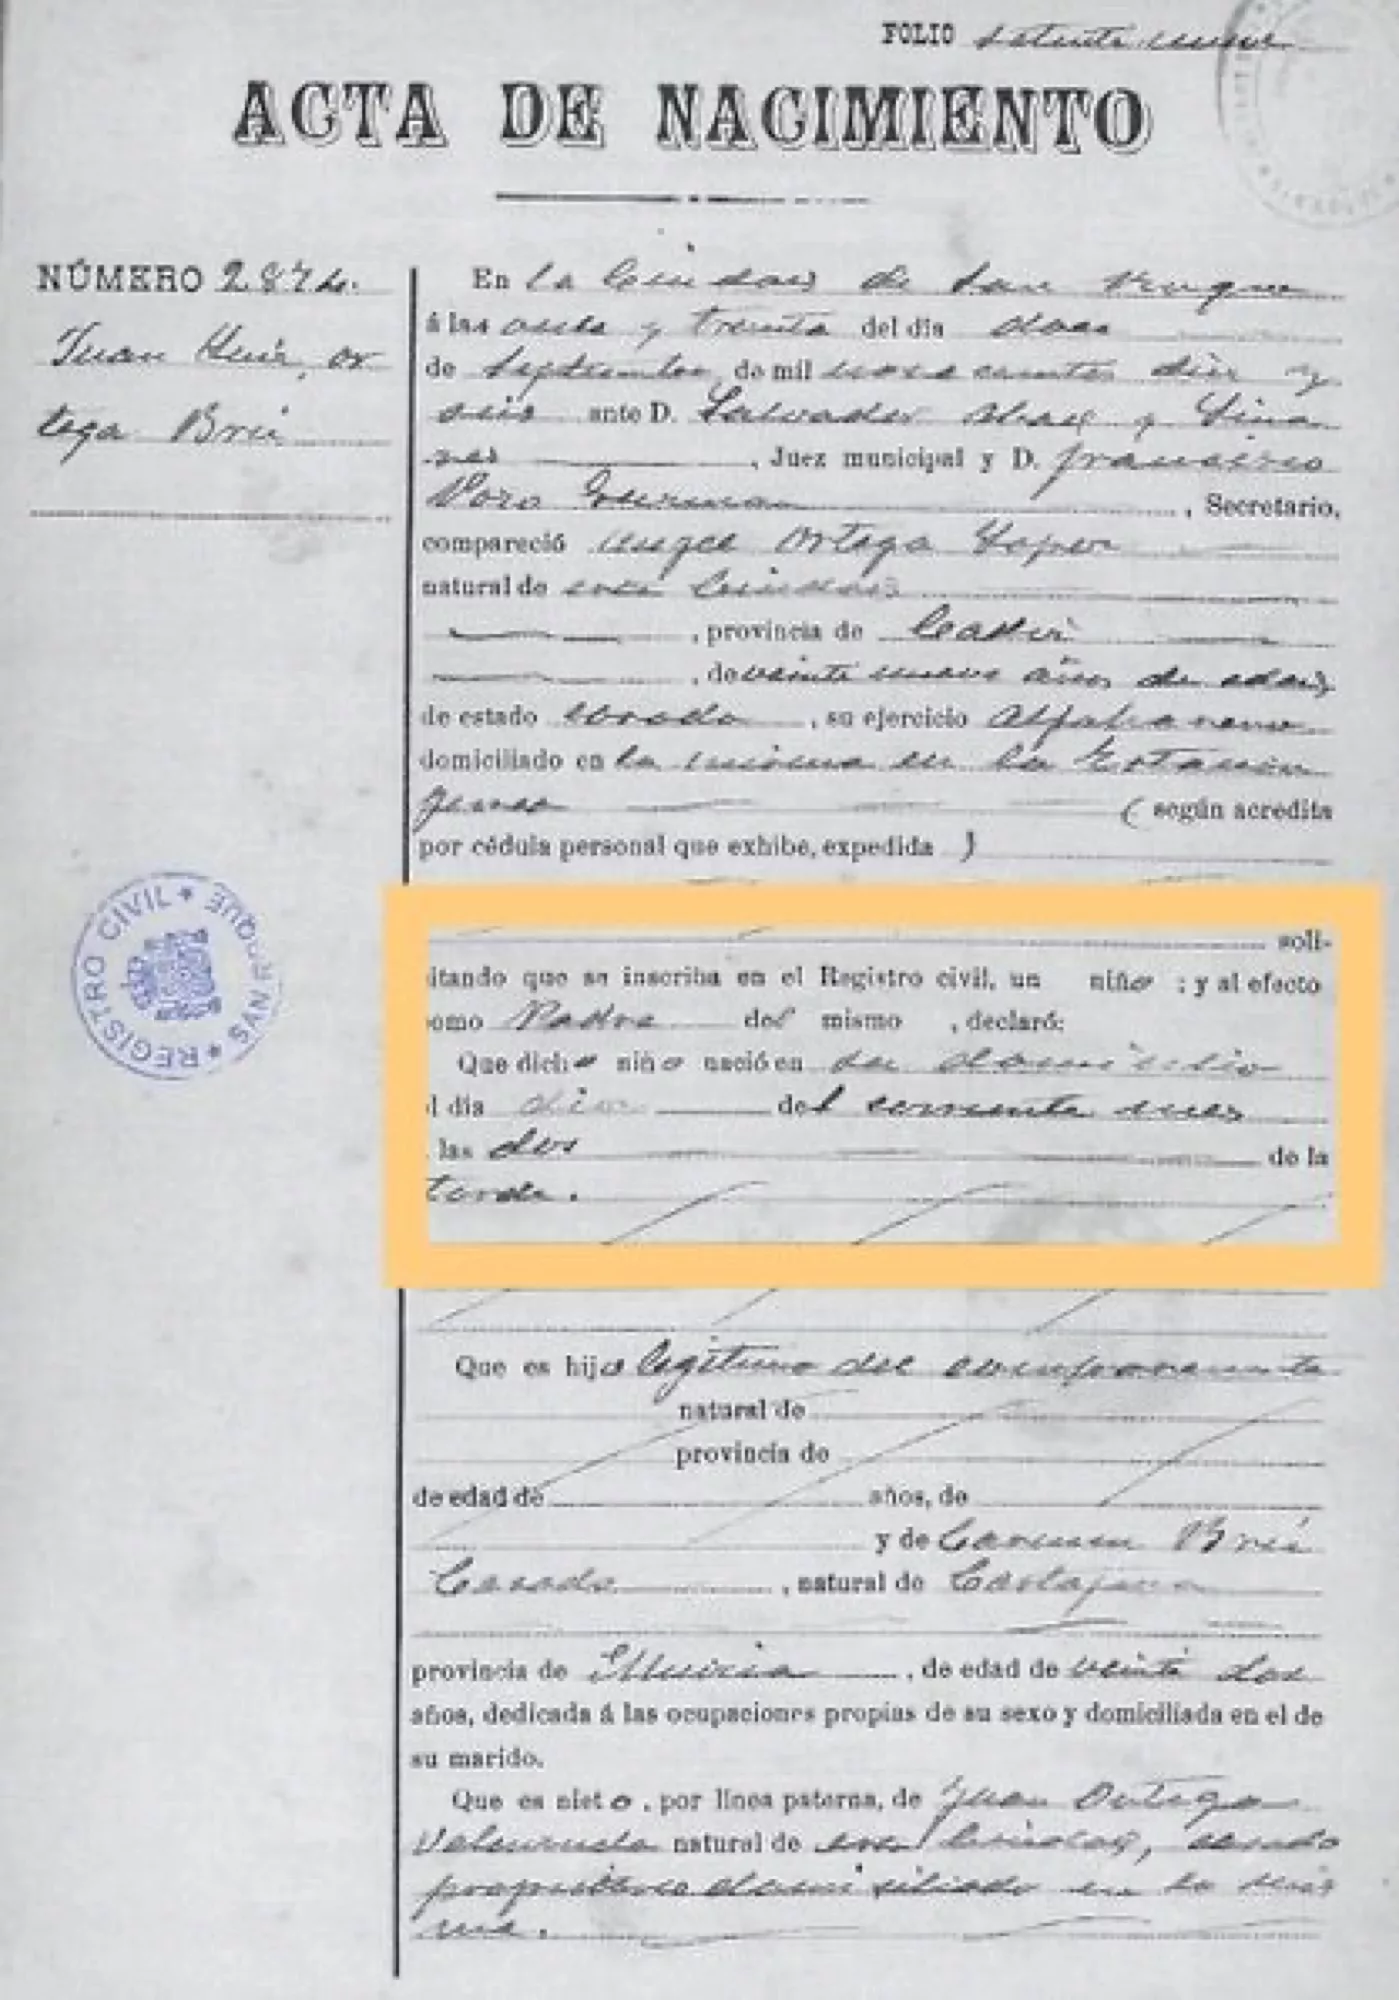 FOLIO setenta nueve
ACTA DE NACIMIENTO
NÚMERO 2874.
Juan Luis, Or
tega Brú
En la Ciudad de San Roque
á las once y treinta del día doce
de septiembre de mil novecientos diez y
seis ante D. Salvador y Lina
res, Juez municipal y D. Francisco
Pozo Guzman, Secretario,
compareció Angel Ortega Lopez
natural de esta Ciudad
, provincia de Cadiz
, de veinte nueve años de edad
de estado casado, su ejercicio Alfarero
domiciliado en la misma en la Estación
ferrea ( según acredita
por cédula personal que exhibe, expedida )
soli-
itando que se inscriba en el Registro civil, un niño ; y al efecto
omo Padre del mismo , declaró:
Que dicho niño nació en su domicilio
l día diez del corriente mes
las dos de la
tarde.
Que es hijo legitimo del compareciente
natural de
provincia de
de edad de años, de
y de Carmen Brú
Casado, natural de Cartagena
provincia de Murcia, de edad de veinte dos
años, dedicada á las ocupaciones propias de su sexo y domiciliada en el de
su marido.
Que es nieto, por línea paterna, de Juan Ortega
Valenzuela natural de esta Ciudad, casado
propietario domiciliado en la mis
ma.
REGISTRO CIVIL * SAN ROQUE *